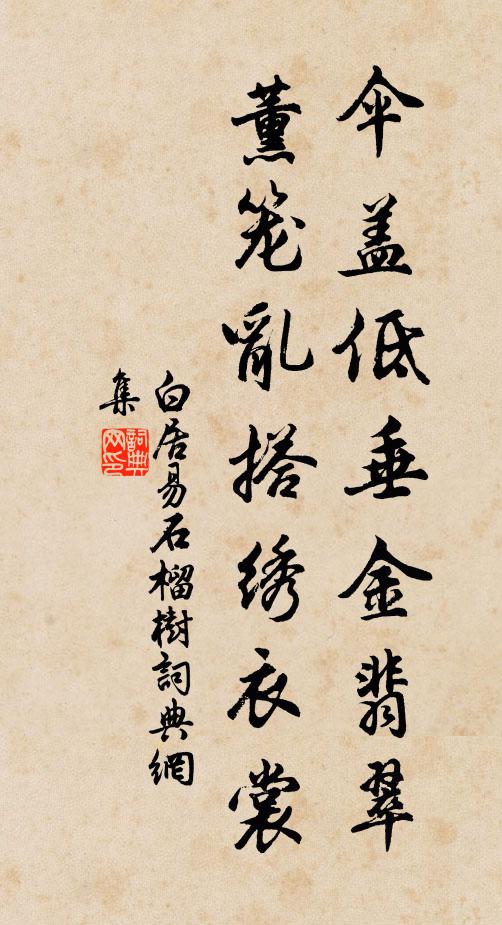 伞盖低垂金翡翠
薰笼亂搭绣衣裳
白居易石榴樹詞典網
集
詞典
网印